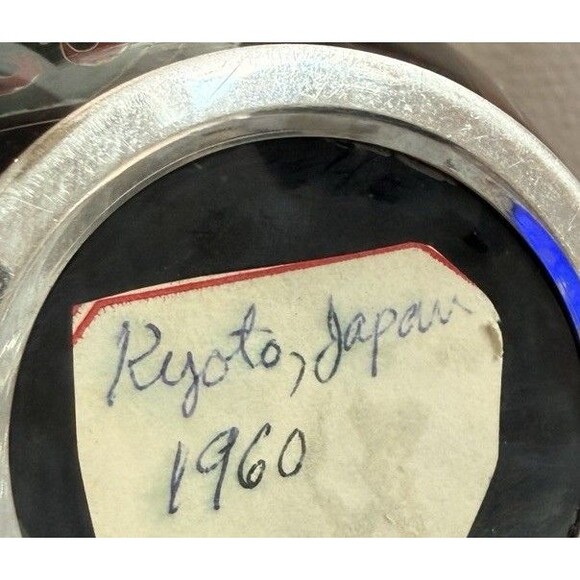 Kyoto, Japan
1960